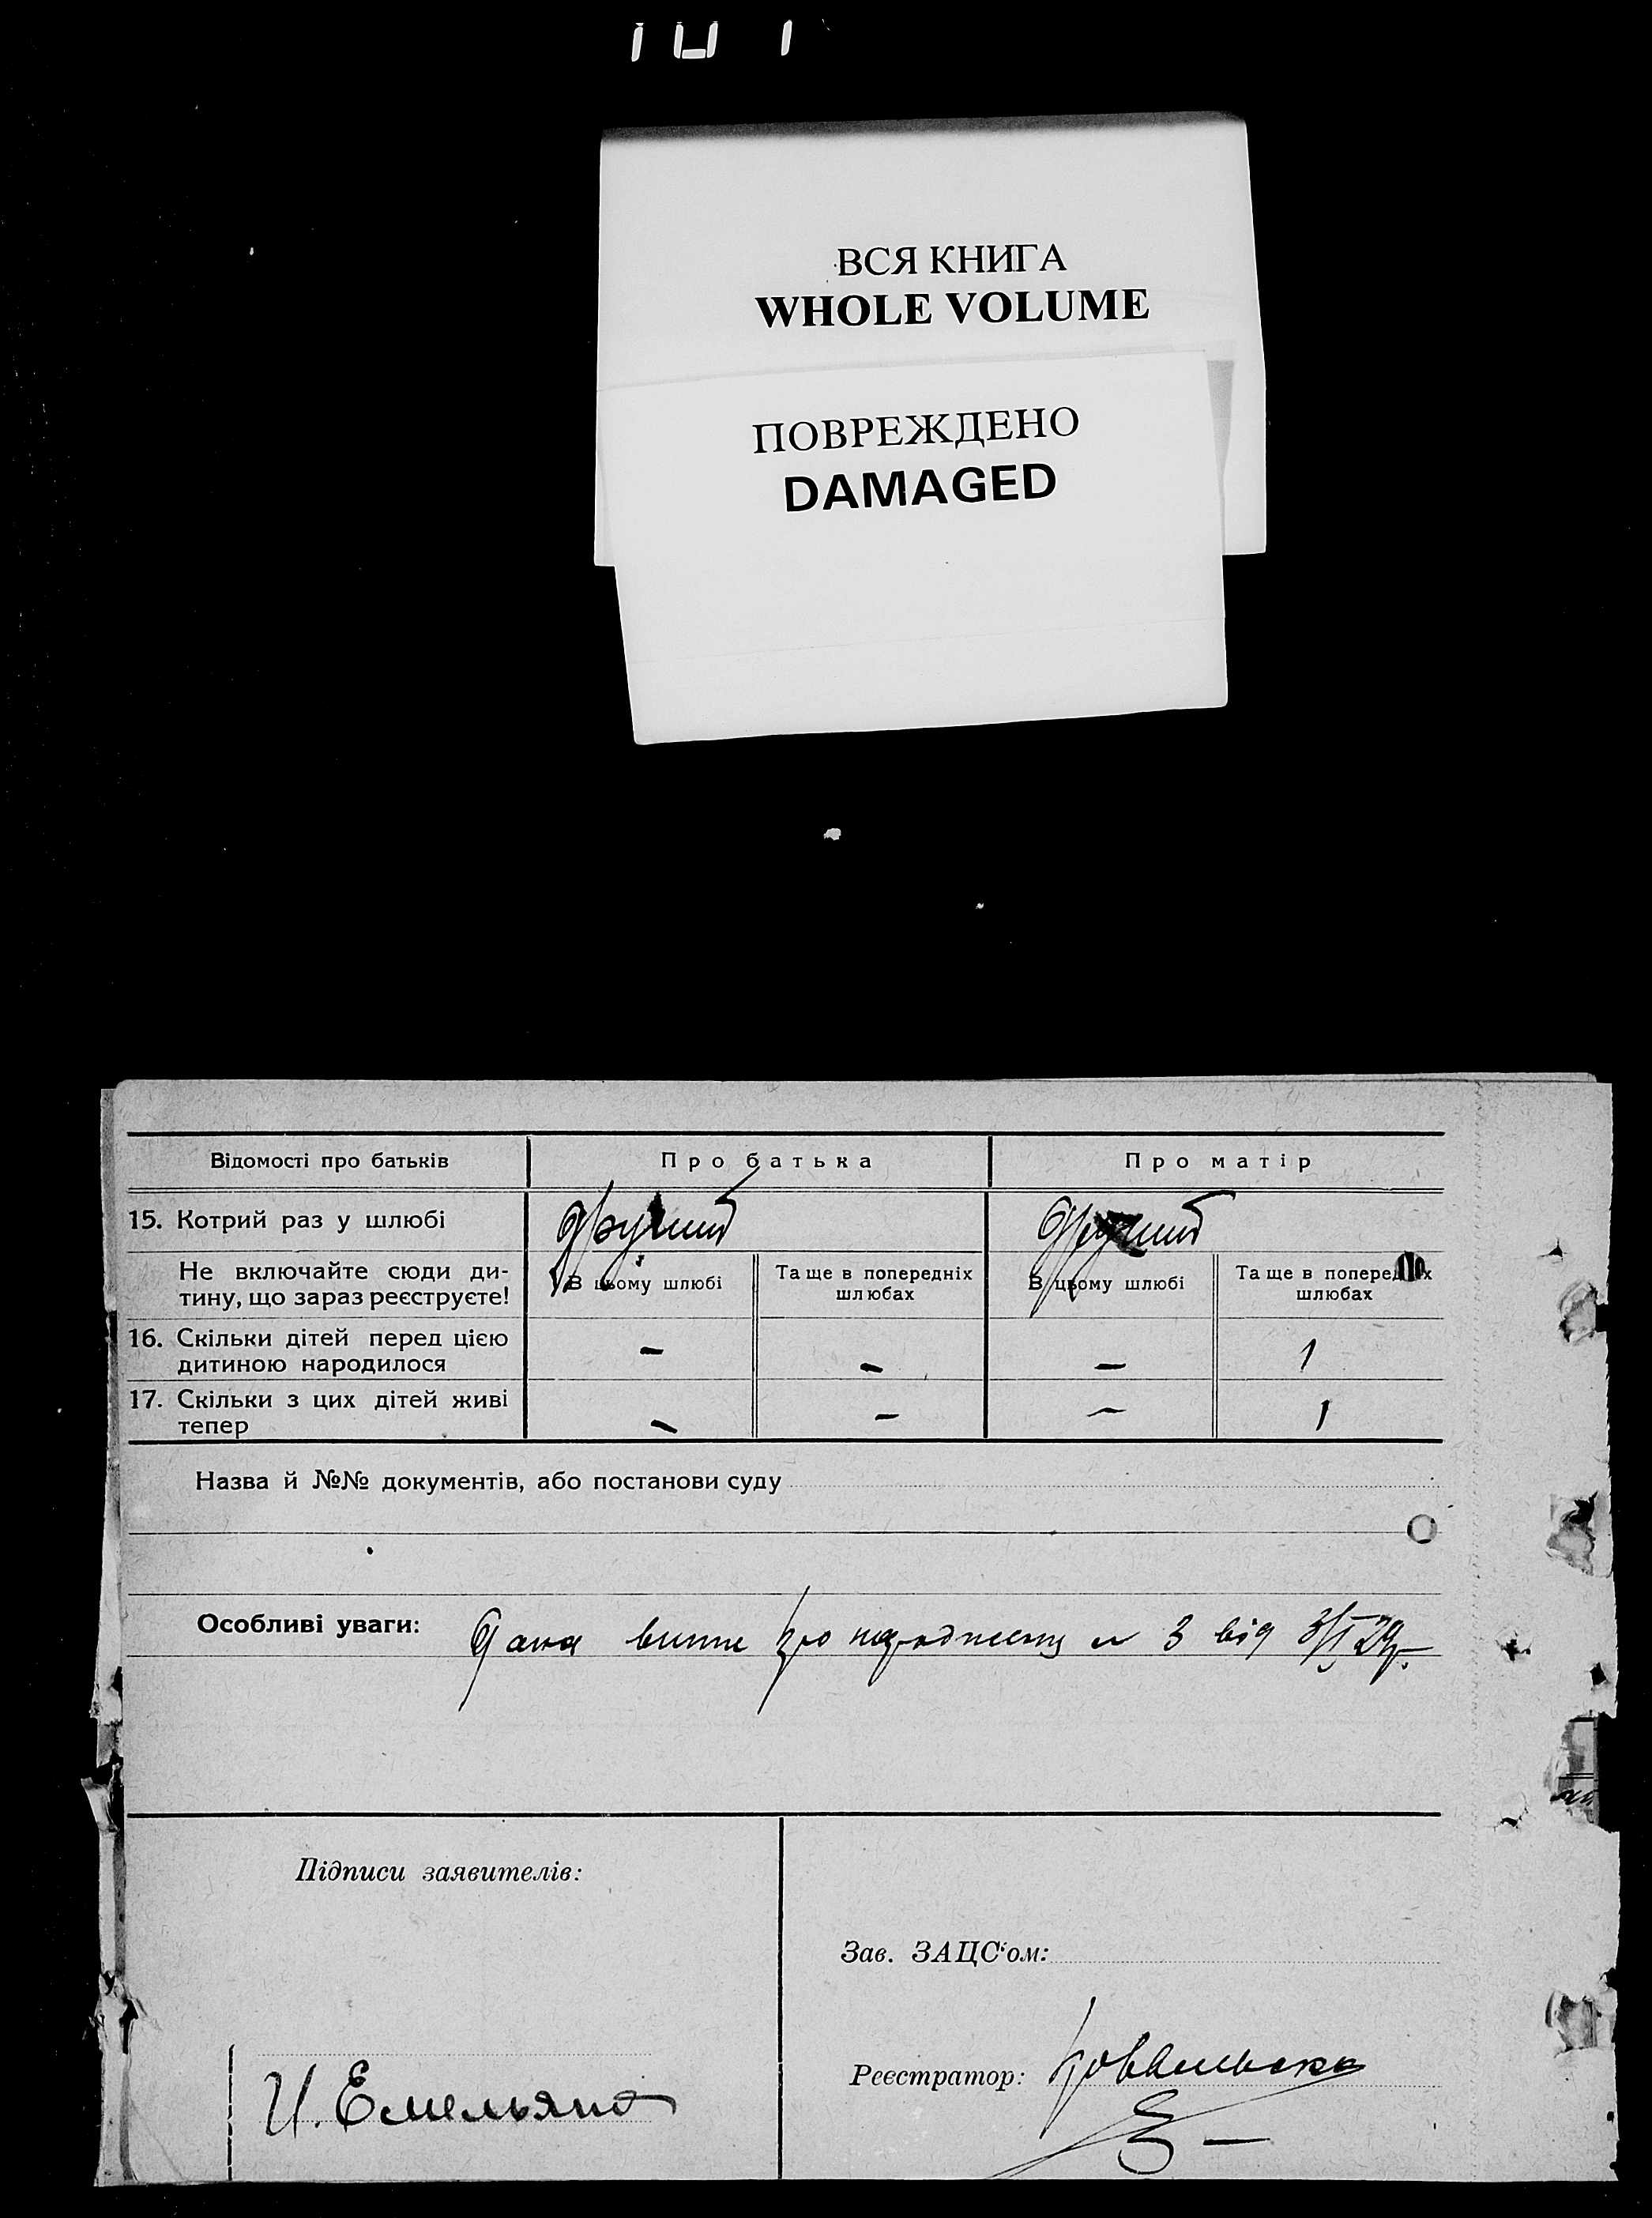 ВСЯ КНИГА
WHOLE VOLUME
ПОВРЕЖДЕНО
DAMAGED
Відомості про батьків
Про батька
Про матір
15. Котрий раз у шлюбі
другий
другий
Не включайте сюди ди-
тину, що зараз реєструєте!
В цьому шлюбі
Та ще в попередніх
шлюбах
В цьому шлюбі
Та ще в попередніх
шлюбах
16. Скільки дітей перед цією
дитиною народилося
–
–
–
1
17. Скільки з цих дітей живі
тепер
–
–
–
1
Назва й №№ документів, або постанови суду
Особливі уваги: Дана про народження № 3 від 3/I 29р.
Підписи заявителів:
Зав. ЗАЦС'ом:
Реєстратор: Ковальська
И. Емельяно